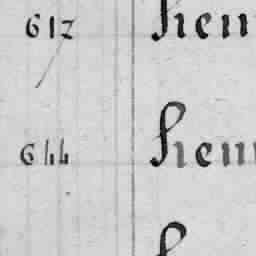 612 hen
644 hen